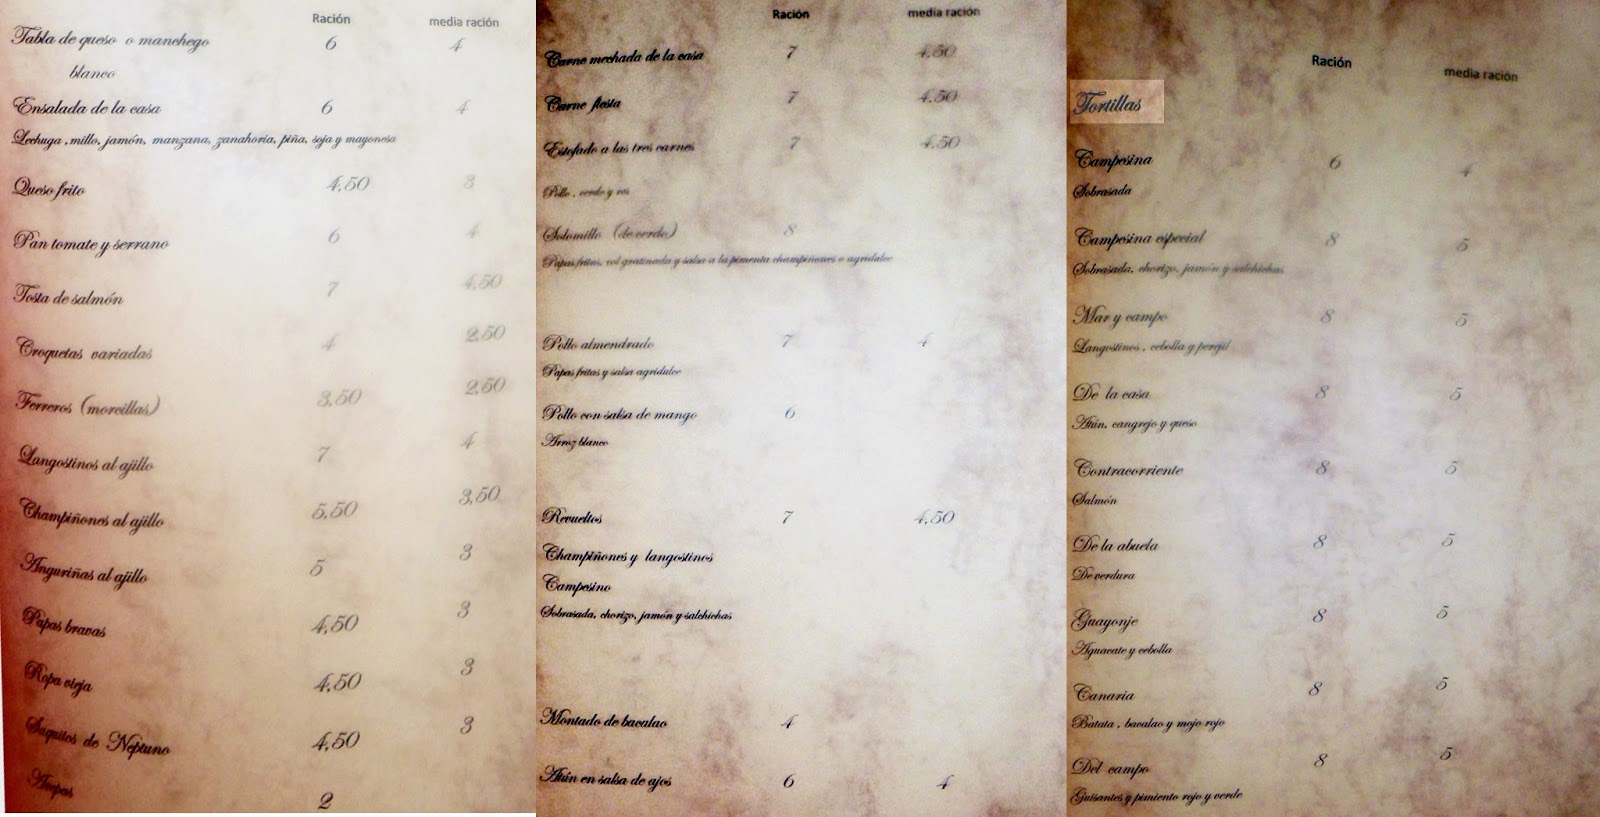 Ración media ración
Tabla de queso o manchego 6 4
blanco
Ensalada de la casa 6 4
Lechuga ,millo, jamón, manzana, zanahoria, piña, soja y mayonesa
Queso frito 4,50 3
Pan tomate y serrano 6 4
Tosta de salmón 7 4,50
Croquetas variadas 4 2,50
Ferreros (morcillas) 3,50 2,50
Langostinos al ajillo 7 4
Champiñones al ajillo 5,50 3,50
Anguriñas al ajillo 5 3
Papas bravas 4,50 3
Ropa vieja 4,50 3
Saquitos de Neptuno 4,50 3
Arepas 2
Ración media ración
Carne mechada de la casa 7 4,50
Carne fiesta 7 4,50
Estofado a las tres carnes 7 4,50
Pollo , cerdo y res
Solomillo (de cerdo) 8
Papas fritas, col gratinada y salsa a la pimenta champiñones o agridulce
Pollo almendrado 7 4
Papas fritas y salsa agridulce
Pollo con salsa de mango 6
Arroz blanco
Revueltos 7 4,50
Champiñones y langostinos
Campesino
Sobrasada, chorizo, jamón y salchichas
Montado de bacalao 4
Atún en salsa de ajos 6 4
Ración media ración
Tortillas
Campesina 6 4
Sobrasada
Campesina especial 8 5
Sobrasada, chorizo, jamón y salchichas
Mar y campo 8 5
Langostinos , cebolla y perejil
De la casa 8 5
Atún, cangrejo y queso
Contracorriente 8 5
Salmón
De la abuela 8 5
De verdura
Guayonje 8 5
Aguacate y cebolla
Canaria 8 5
Batata , bacalao y mojo rojo
Del campo 8 5
Guisantes y pimiento rojo y verde